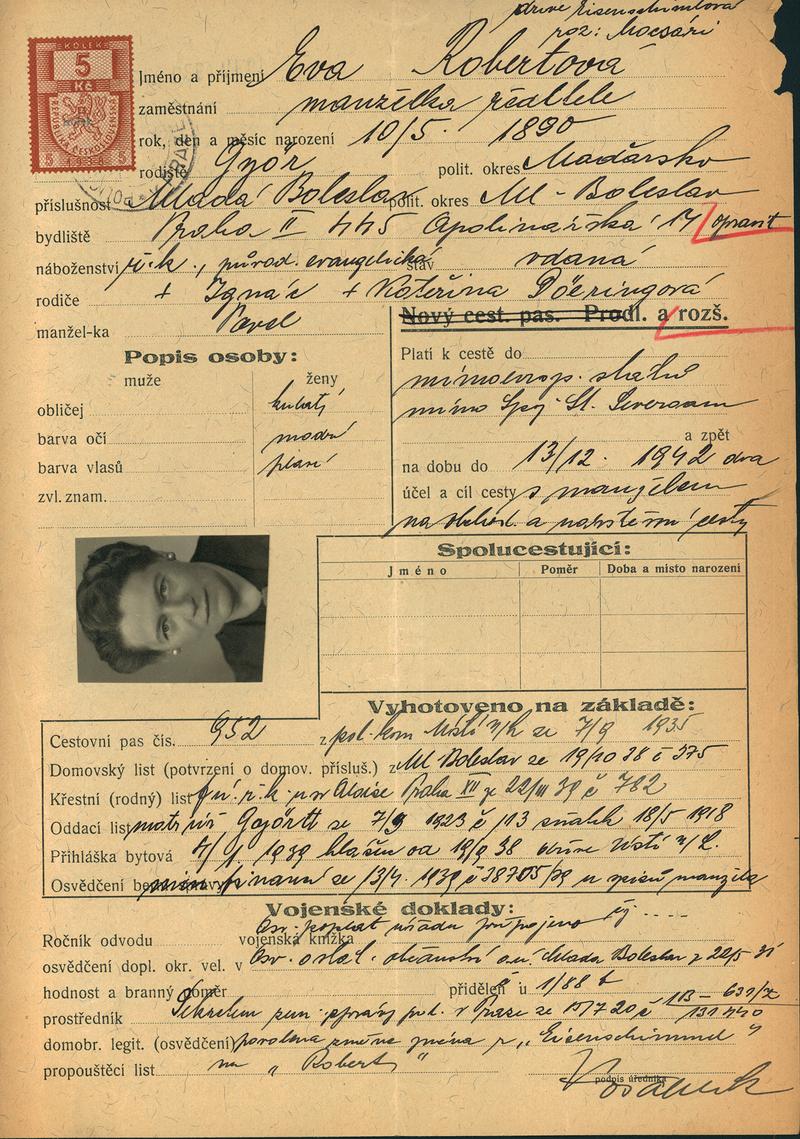 dříve Eisenschimlová
roz: Mocsári
KOLEK
5
Kč
REPUBLIKA ČESKOSLOVENSKÁ
5 1938 5
Jméno a příjmení Eva Robertová
zaměstnání manželka ředitele
rok, den a měsíc narození 10/5. 1890
rodiště Györ polit. okres Maďarsko
příslušnost Mladá Boleslav polit. okres Ml-Boleslav
bydliště Praha II 445 Apolinářská 17 opravit
náboženství ř.k., původ. evangelická stav vdaná
rodiče + Ignác + Kateřina Döeringová
manžel-ka Pavel
Nový cest. pas. Prodl. a rozš.
Popis osoby:
muže ženy
obličej kulatý
barva očí modré
barva vlasů plavé
zvl. znam.
Platí k cestě do
mimoevrop. států
mimo Spoj. St. Severoam
a zpět
na dobu do 13/12. 1942 dva
účel a cíl cesty s manželem
na obchod. a návštěvní cesty
Spolucestující:
Jméno Poměr Doba a místo narození
Vyhotoveno na základě:
Cestovní pas čís. 952 z pol. kom Ústí n/L ze 7/9 1935
Domovský list (potvrzení o domov. přísluš.) z Ml Boleslav ze 19/10 38 č 375
Křestní (rodný) list fú. ř.k. u sv Aloise Praha XII ze 22/III 39 č 782
Oddací list matr. úř Györ ze 7/9 1923 č 113 sňatek 18/5 1918
Přihláška bytová 4/1. 1939 hlášen od 19/9 38 dříve Ústí n/L.
Osvědčení ber. min. financí ze 13/4. 1939 č 38705/39 u spisů manžela
Vojenské doklady:
Ročník odvodu vojenská knížka
Osv. poplat. úřadu připojeno
osvědčení dopl. okr. vel. v Osv. o stát. občanství o.ú. Mladá Boleslav z 22/5 31
hodnost a branný poměr přidělen u č 1/88 6
prostředník Dekretem zem. správy pol. v Praze ze 15/7 20 č 1B – 631/2
131440
domobr. legit. (osvědčení) povolena změna jména z „Eisenschimmel"
propouštěcí list na „Robert"
podpis úředníka